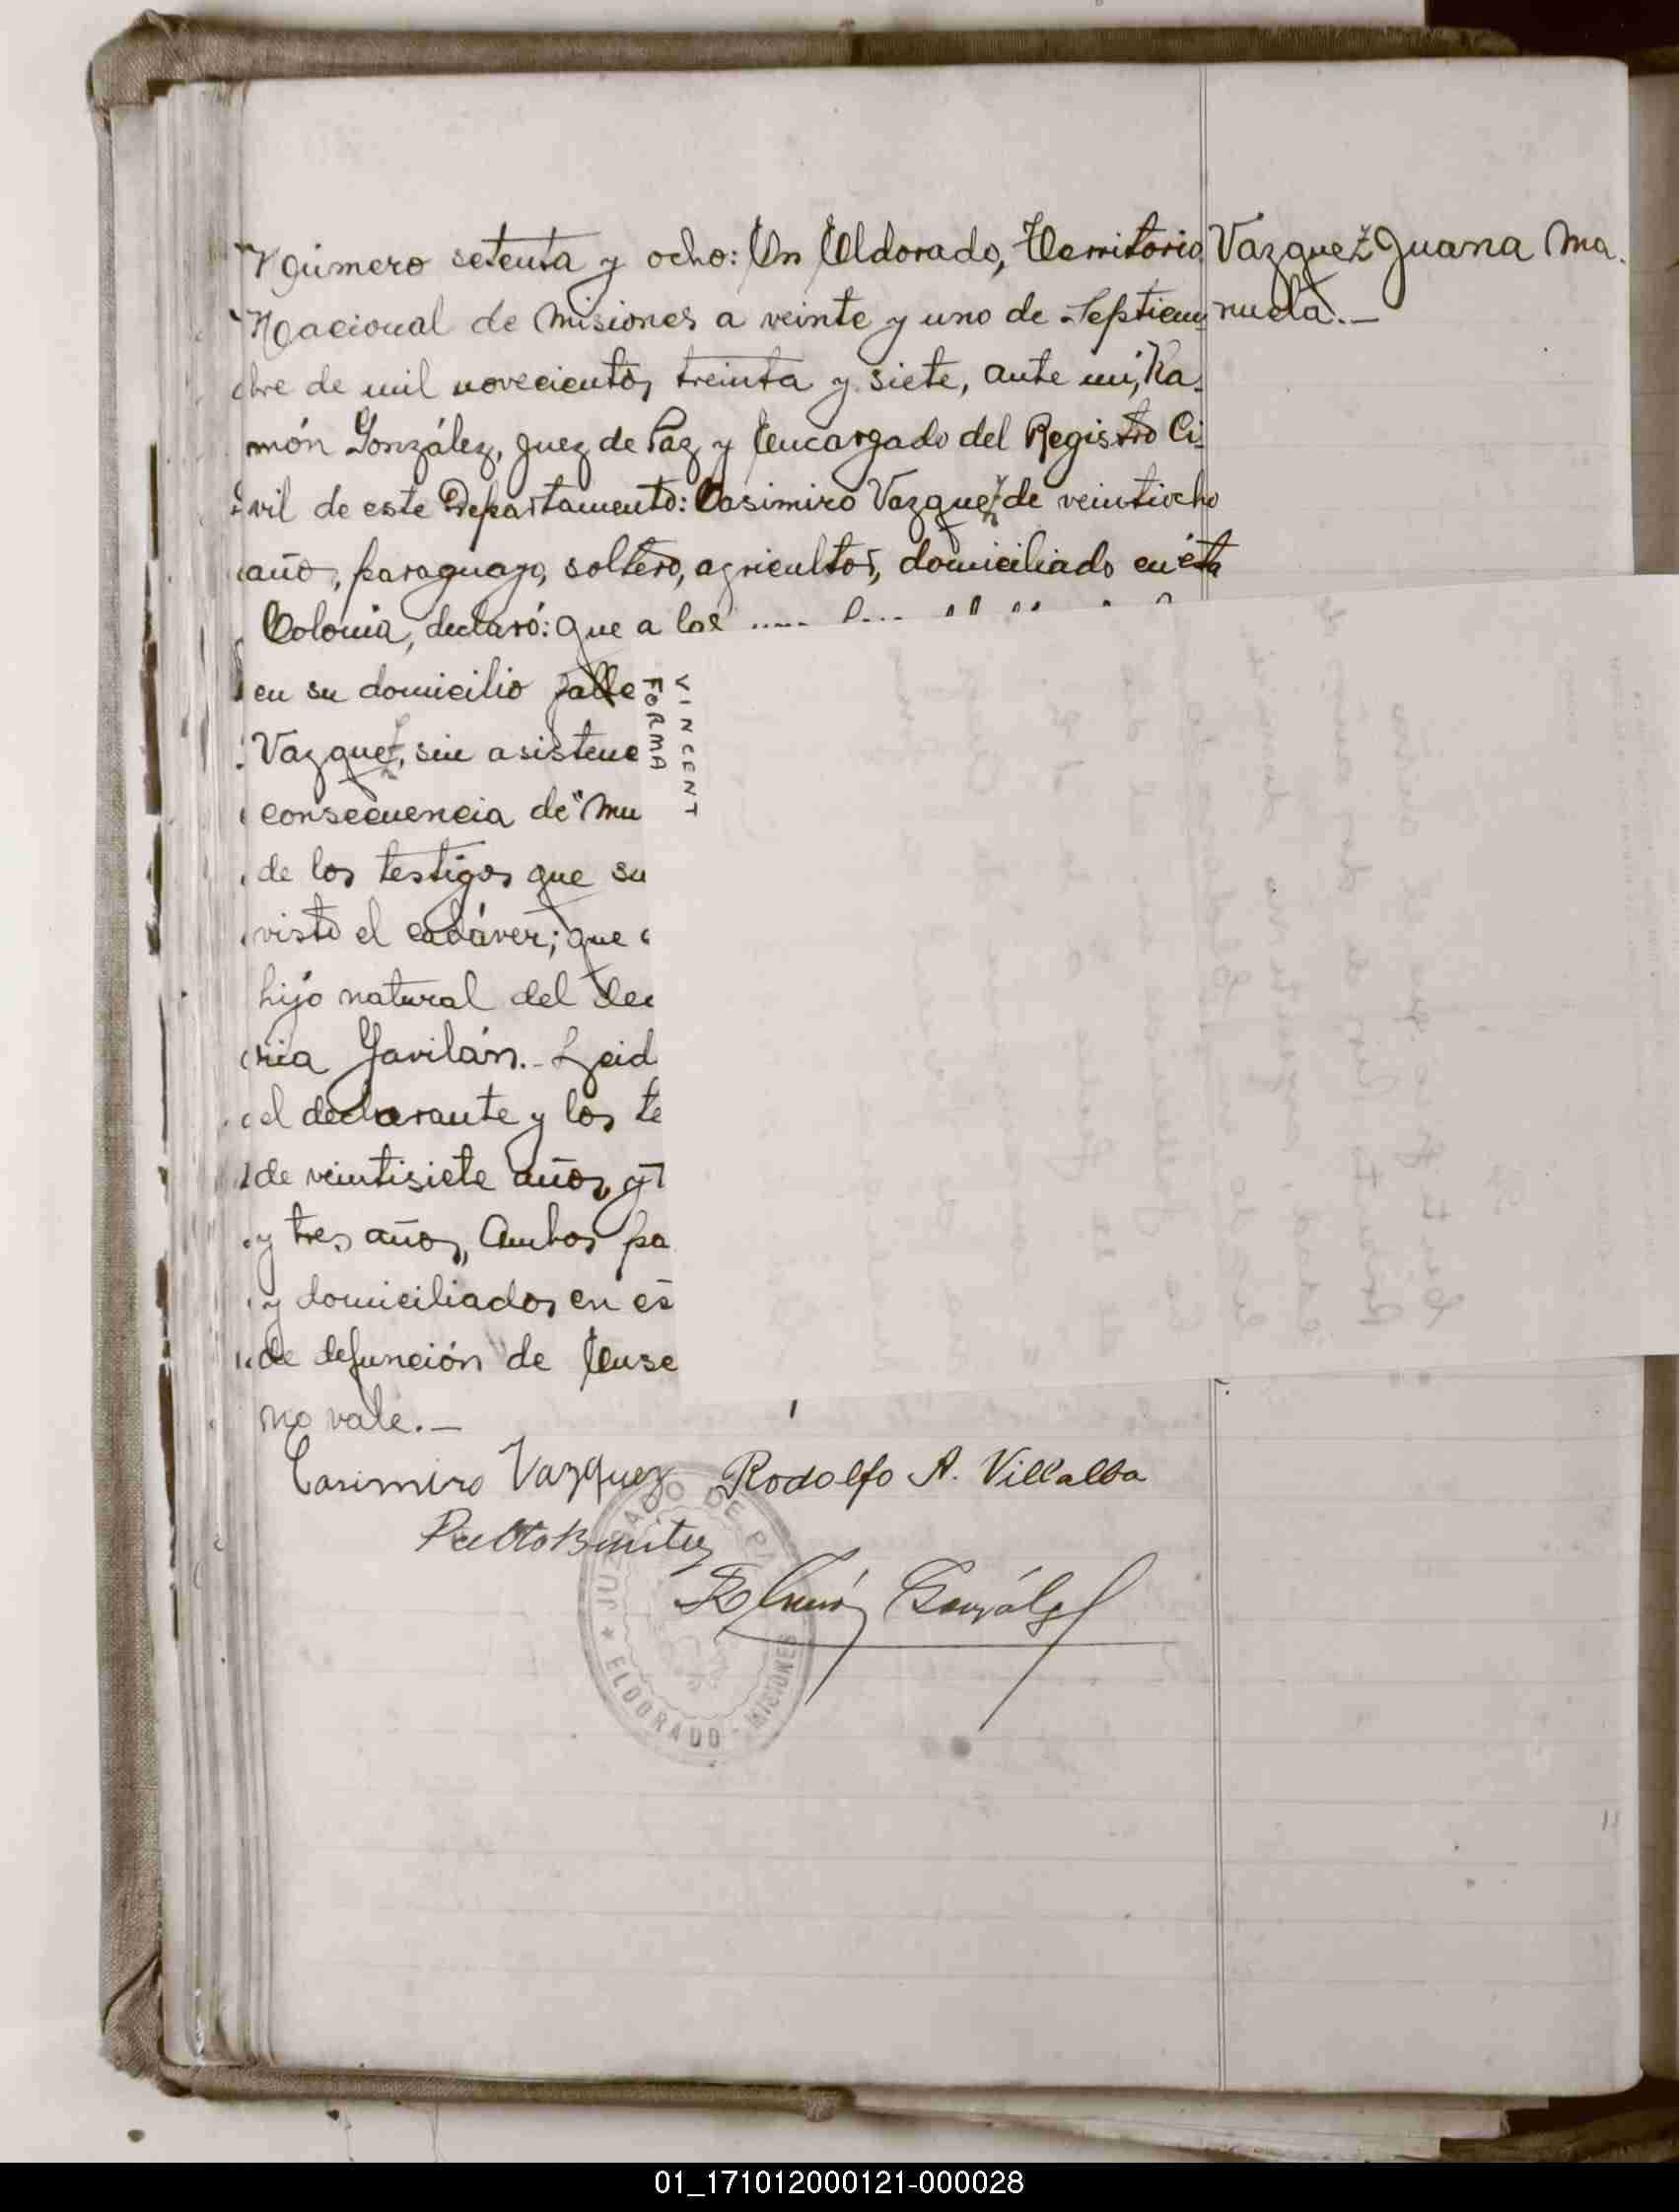 Número setenta y ocho: En Eldorado, Territorio
Nacional de Misiones a veinte y uno de Septiem
bre de mil novecientos treinta y siete, ante mi, Ra-
món González, Juez de Paz y Encargado del Registro Ci-
vil de este Departamento: Casimiro Vazquez de veintiocho
años, paraguayo, soltero, agricultor, domiciliado en ésta
Colonia, declaró: que a las
en su domicilio falle
Vazquez, sin asistenc
consecuencia de "Mu
de los testigos que su
visto el cadáver; que
hijo natural del dec
ria Gavilán.- Leid
el declarante y los te
de veintisiete años, y
y tres años, Ambos pa
y domiciliados en es
de defunción "de Ense
no vale.—
Vazquez Juana Ma-
nuela.—
VINCENT
FORMA
Casimiro Vazquez
Rodolfo A. Villalba
Pablo Benítez
Ramón González
JUZGADO DE PAZ
* ELDORADO - MISIONES
01_171012000121-000028